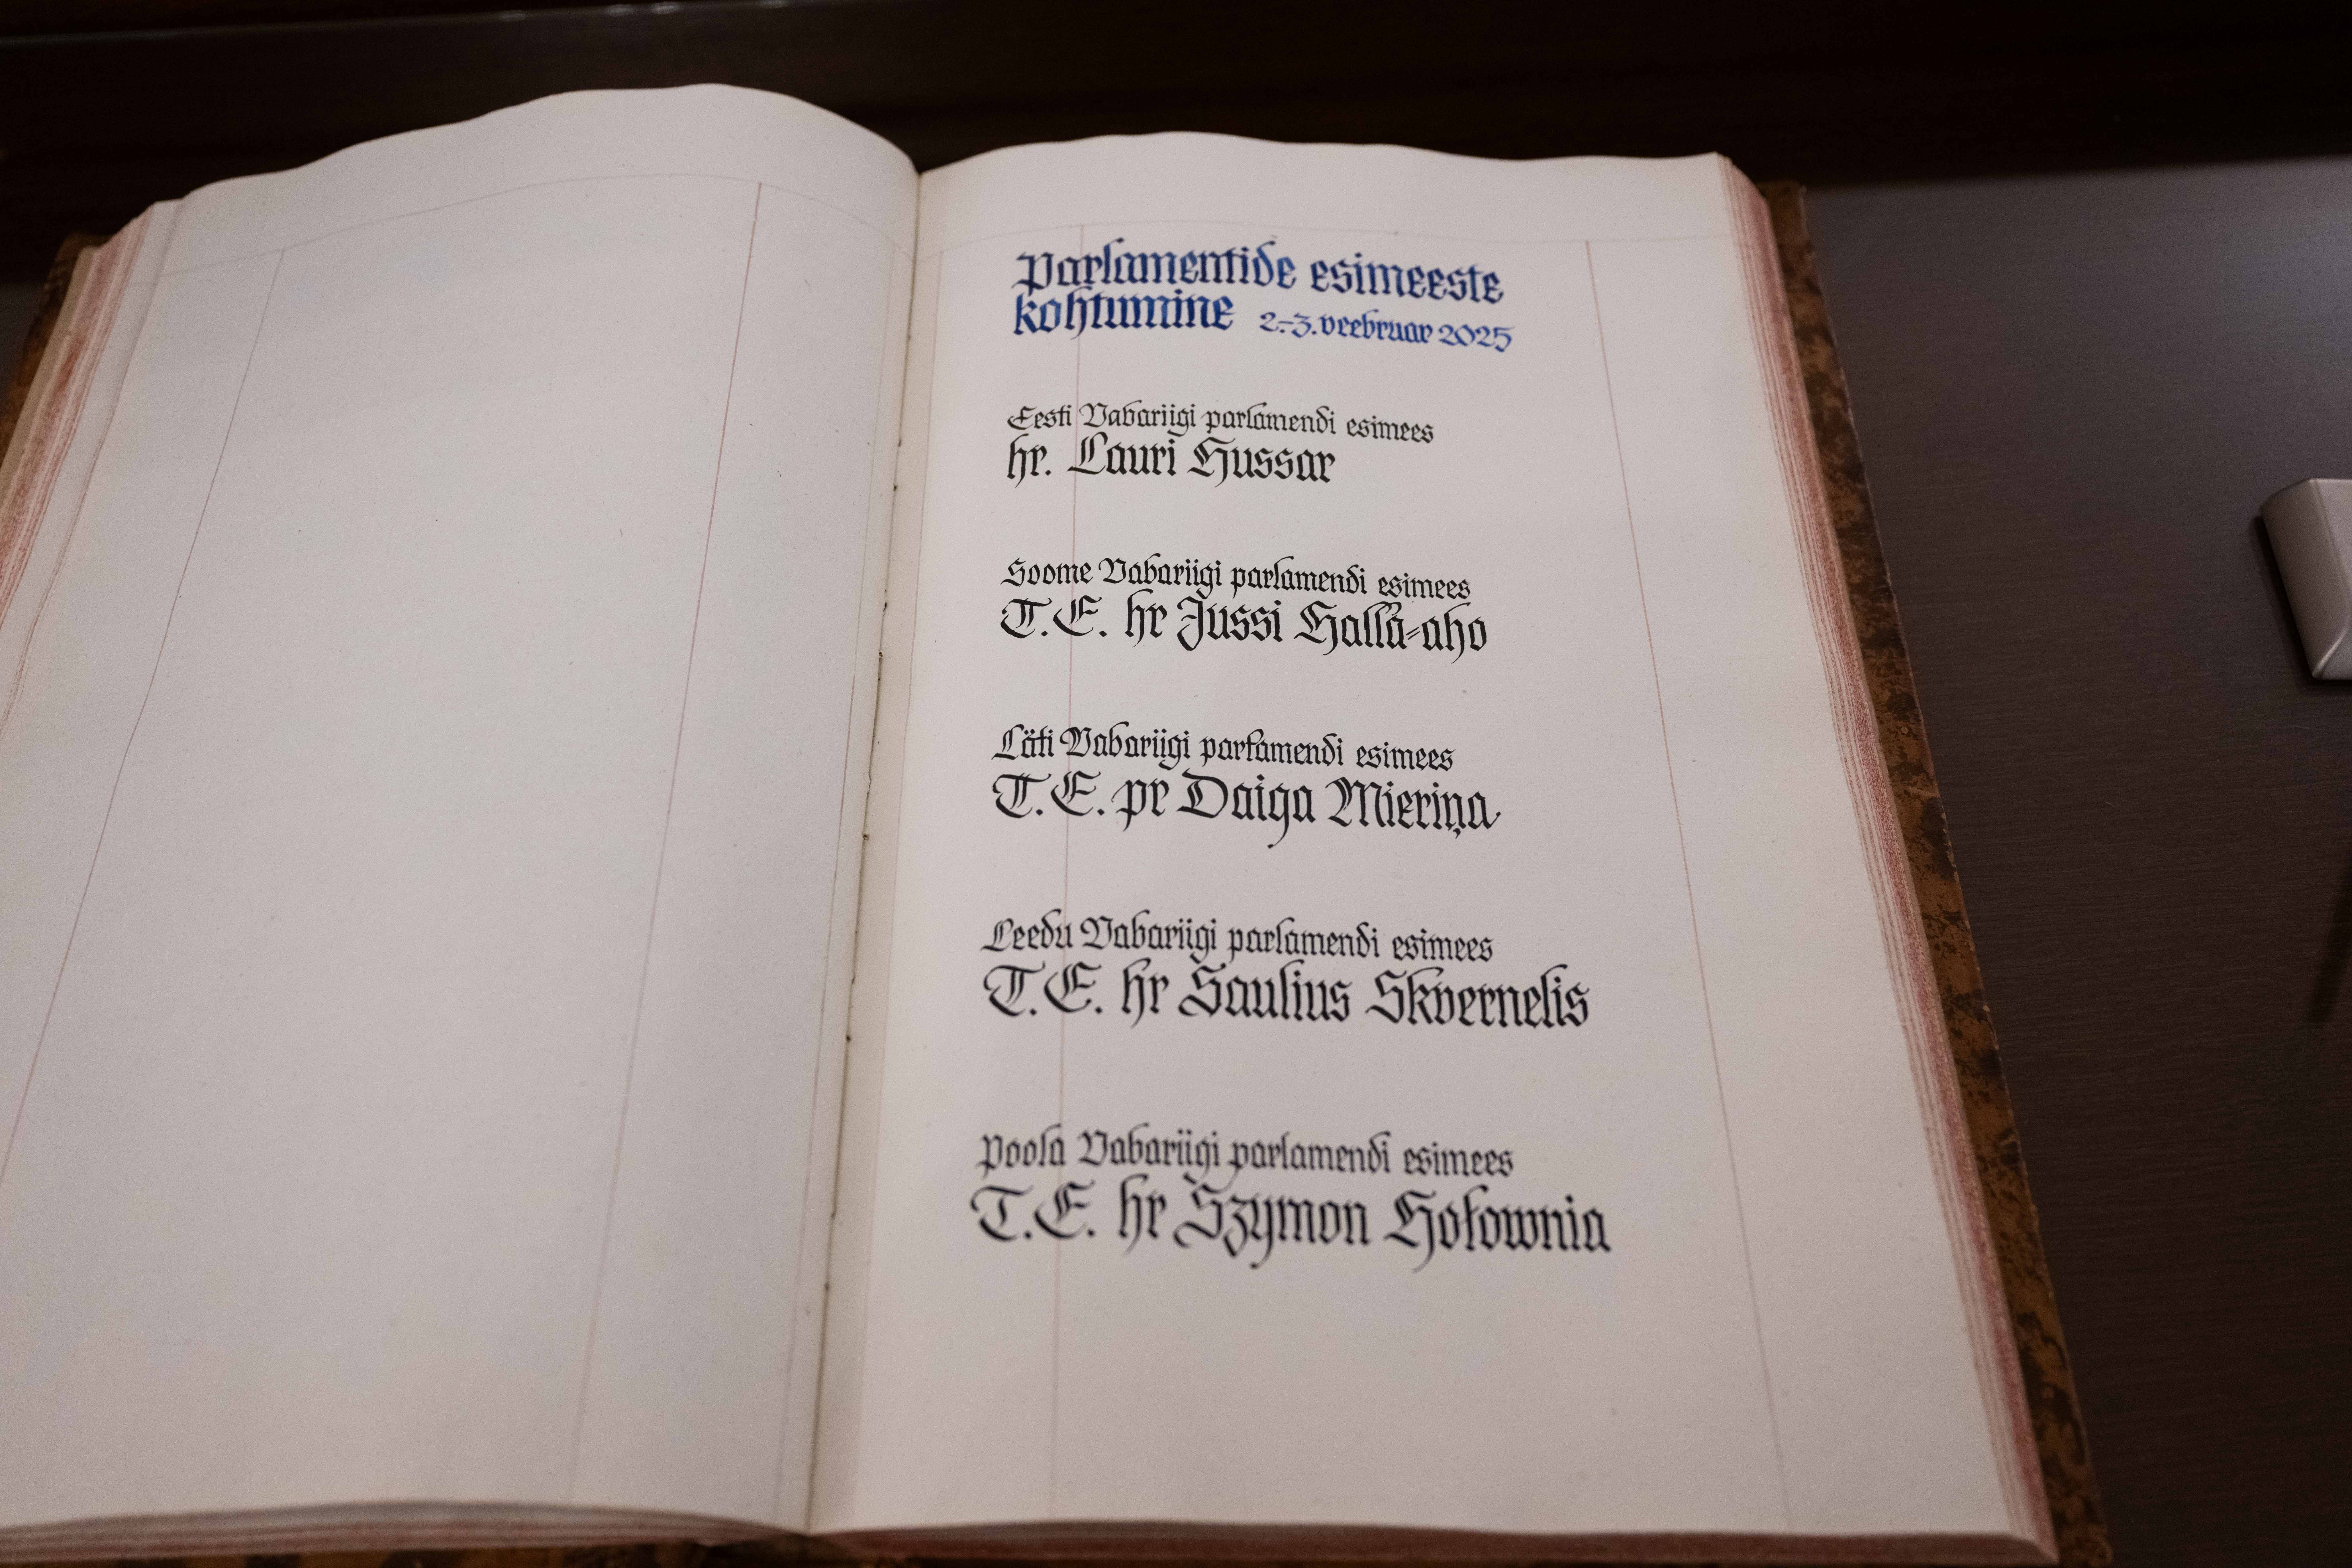 Parlamentide esimeeste
kohtumine 2.-3. veebruar 2025
Eesti Vabariigi parlamendi esimees
hr. Lauri Hussar
Soome Vabariigi parlamendi esimees
T.E. hr Jussi Halla-aho
Läti Vabariigi parlamendi esimees
T.E. pr Daiga Mieriņa
Leedu Vabariigi parlamendi esimees
T.E. hr Saulius Skvernelis
Poola Vabariigi parlamendi esimees
T.E. hr Szymon Hołownia